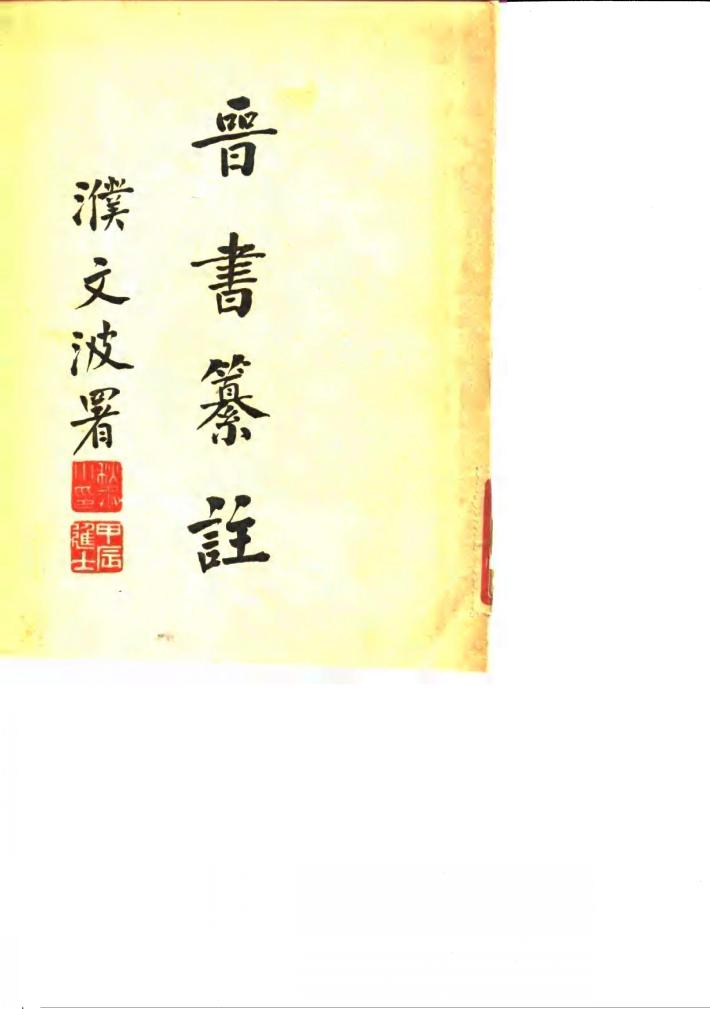 晉書纂註
濮文波署
甲辰進士